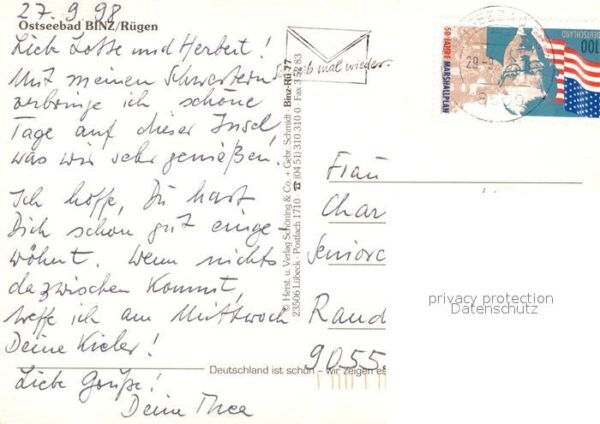 27.9.98
Ostseebad BINZ/Rügen
Liebe Lotte und Herbert!
Mit meinen Schwestern
verbringe ich schöne
Tage auf dieser Insel,
was wir sehr genießen!
Ich hoffe, Du hast
Dich schon gut einge-
wöhnt. Wenn nichts
dazwischen kommt,
treffe ich am Mittwoch
Deine Kieler!
Liebe Grüße!
Deine Thea
© Herst. u. Verlag Schöning & Co. + Gebr. Schmidt · Binz-Rü 77
23506 Lübeck · Postfach 1710 · ☎ (04 51) 310 310 0 · Fax 3 82 83
Schreib mal wieder
DEUTSCHLAND
100
50 JAHRE MARSHALLPLAN
Frau
Char
Seniorc
Rand
9055
privacy protection
Datenschutz
Deutschland ist schön – wir zeigen es